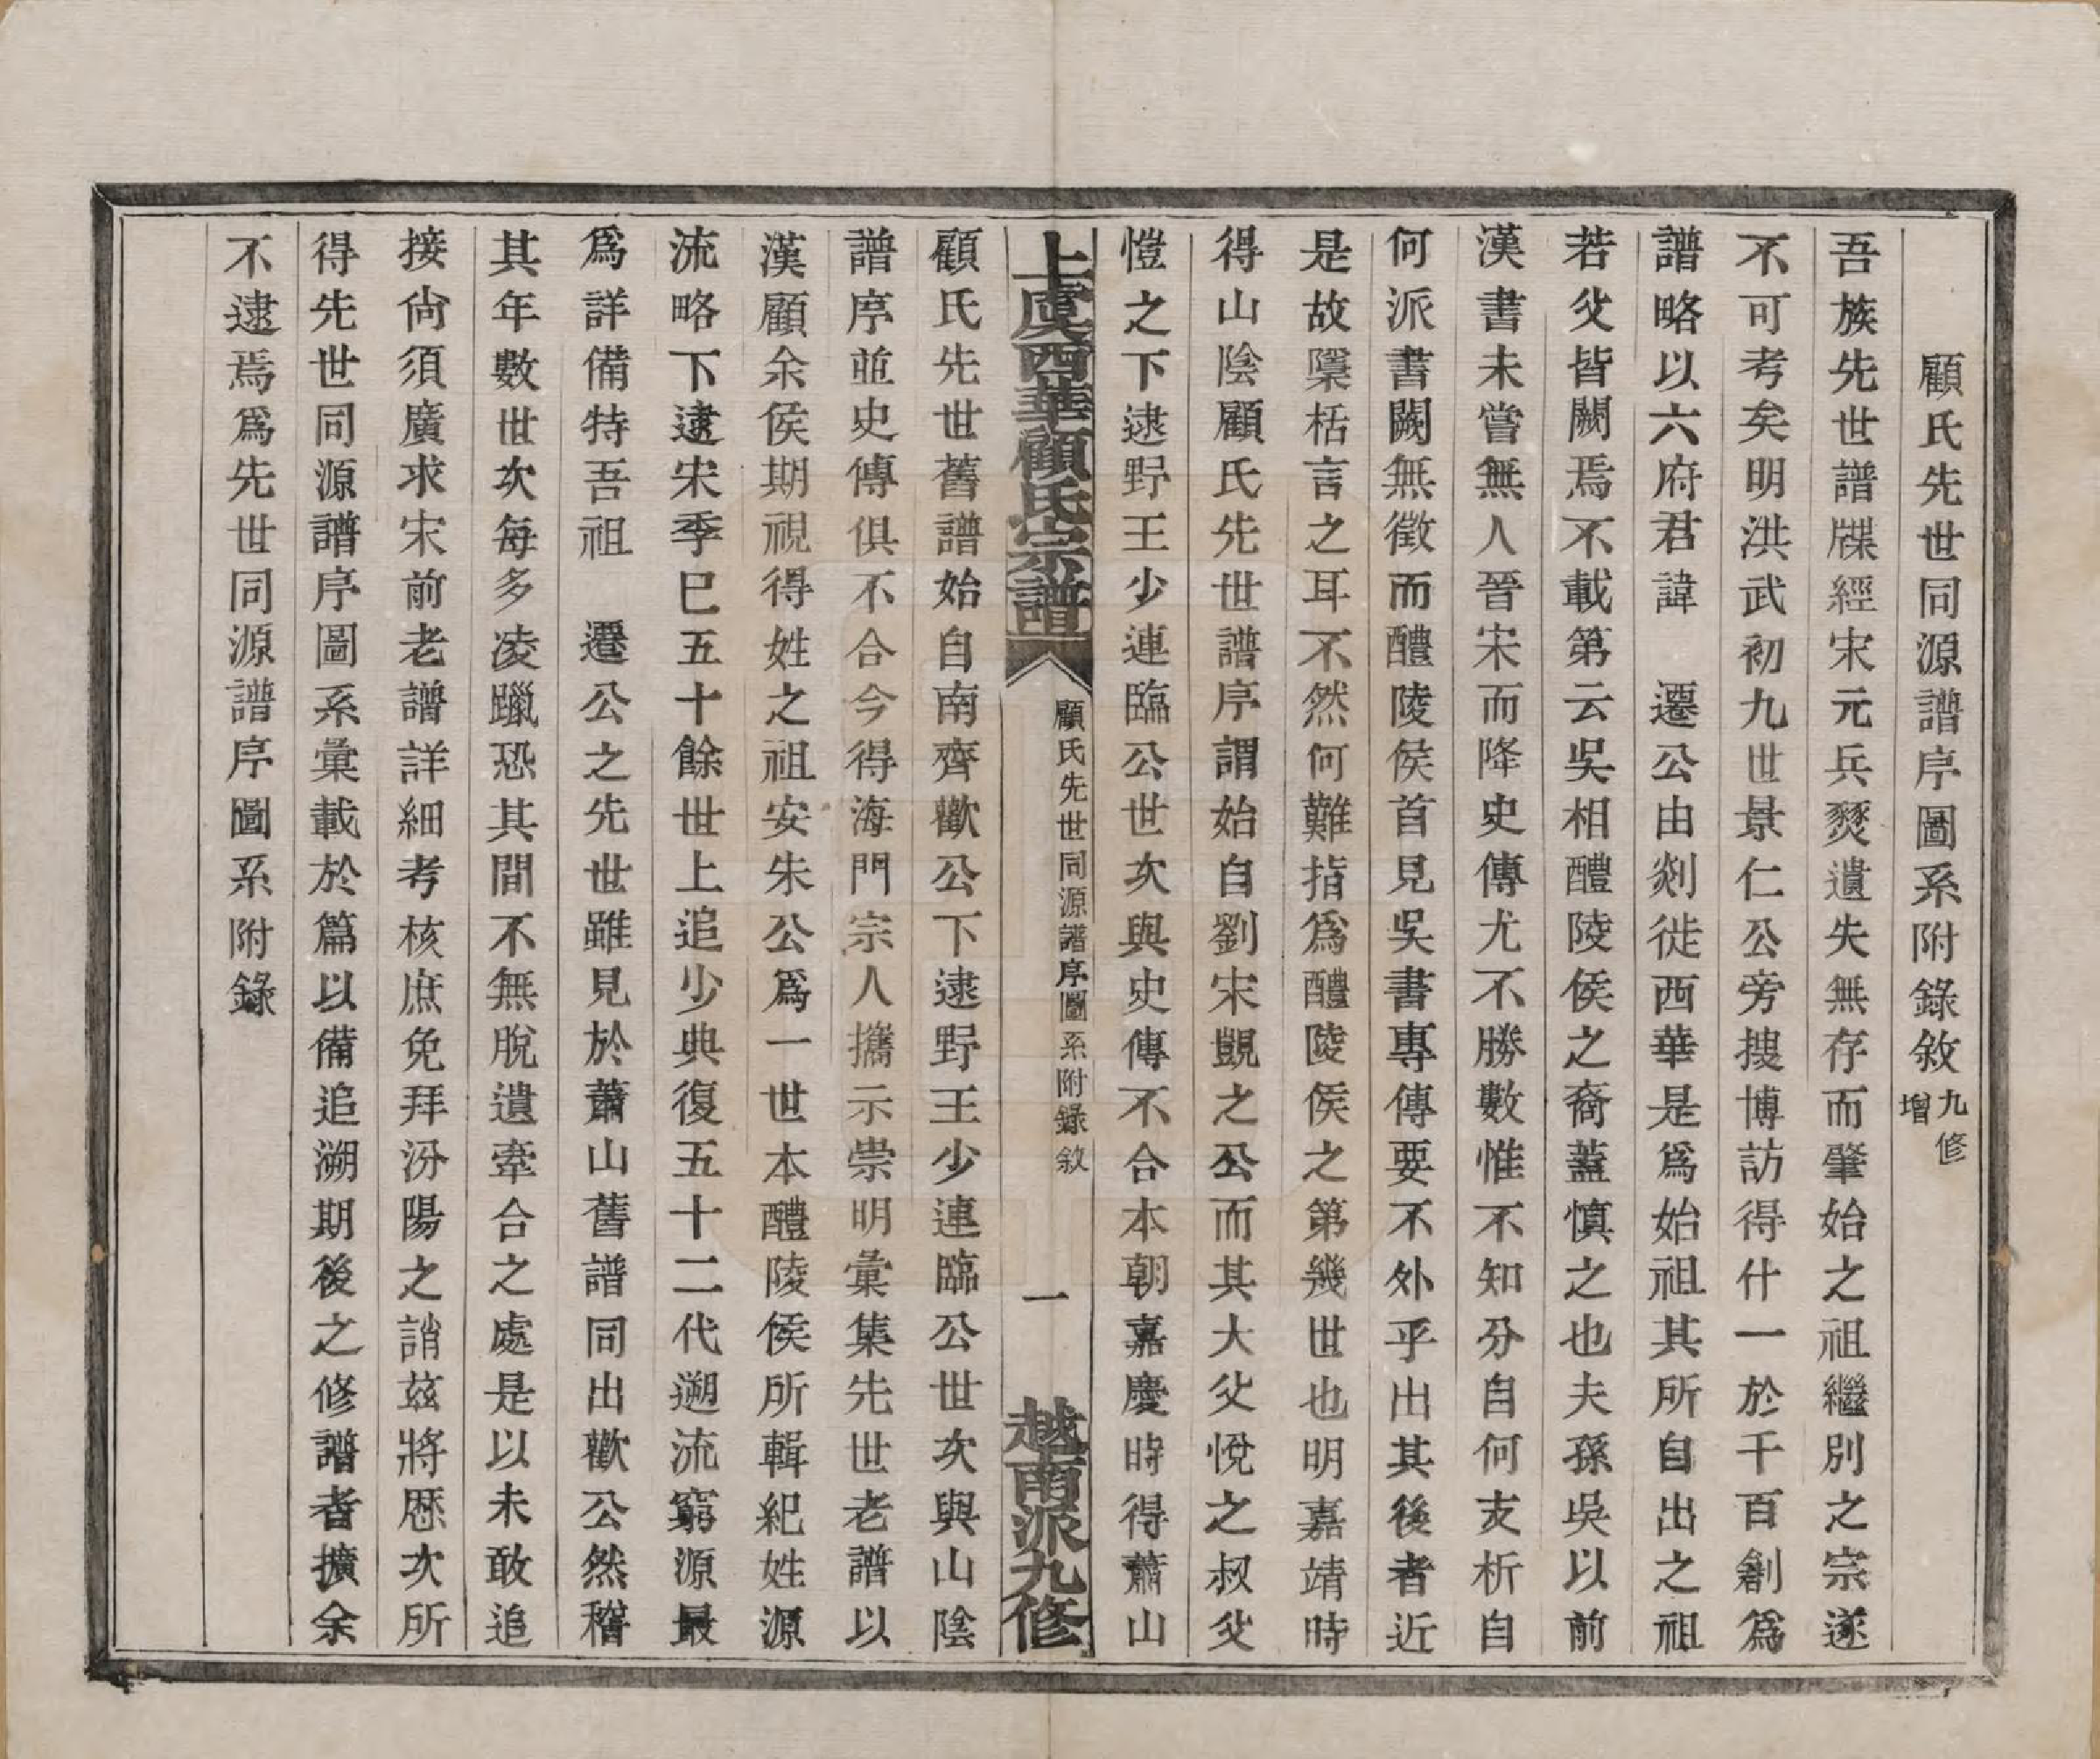 顧氏先世同源譜序圖系附錄敘九修增
吾族先世譜牒經宋元兵燹遺失無存而肇始之祖繼別之宗遂
不可考矣明洪武初九世景仁公旁搜博訪得什一於千百創為
譜略以六府君諱　遷公由剡徙西華是爲始祖其所自出之祖
若父皆闕焉不載第云吳相醴陵侯之裔蓋慎之也夫孫吳以前
漢書未嘗無人晉宋而降史傳尤不勝數惟不知分自何支析自
何派書闕無徵而醴陵侯首見吳書專傳要不外乎出其後者近
是故檃栝言之耳不然何難指爲醴陵侯之第幾世也明嘉靖時
得山陰顧氏先世譜序謂始自劉宋覬之公而其大父悅之叔父
愷之下逮野王少連臨公世次與史傳不合本朝嘉慶時得蕭山
上虞西華顧氏宗譜
顧氏先世同源譜序圖系附錄敘
一
越南派九修
顧氏先世舊譜始自南齊歡公下逮野王少連臨公世次與山陰
譜序並史傳俱不合今得海門宗人攜示崇明彙集先世老譜以
漢顧余侯期視得姓之祖安朱公爲一世本醴陵侯所輯紀姓源
流略下逮宋季巳五十餘世上追少典復五十二代遡流窮源最
爲詳備特吾祖　遷公之先世雖見於蕭山舊譜同出歡公然稽
其年數世次每多凌躐恐其間不無脫遺牽合之處是以未敢追
接尙須廣求宋前老譜詳細考核庶免拜汾陽之誚茲將歷次所
得先世同源譜序圖系彙載於篇以備追溯期後之修譜者擴余
不逮焉爲先世同源譜序圖系附錄